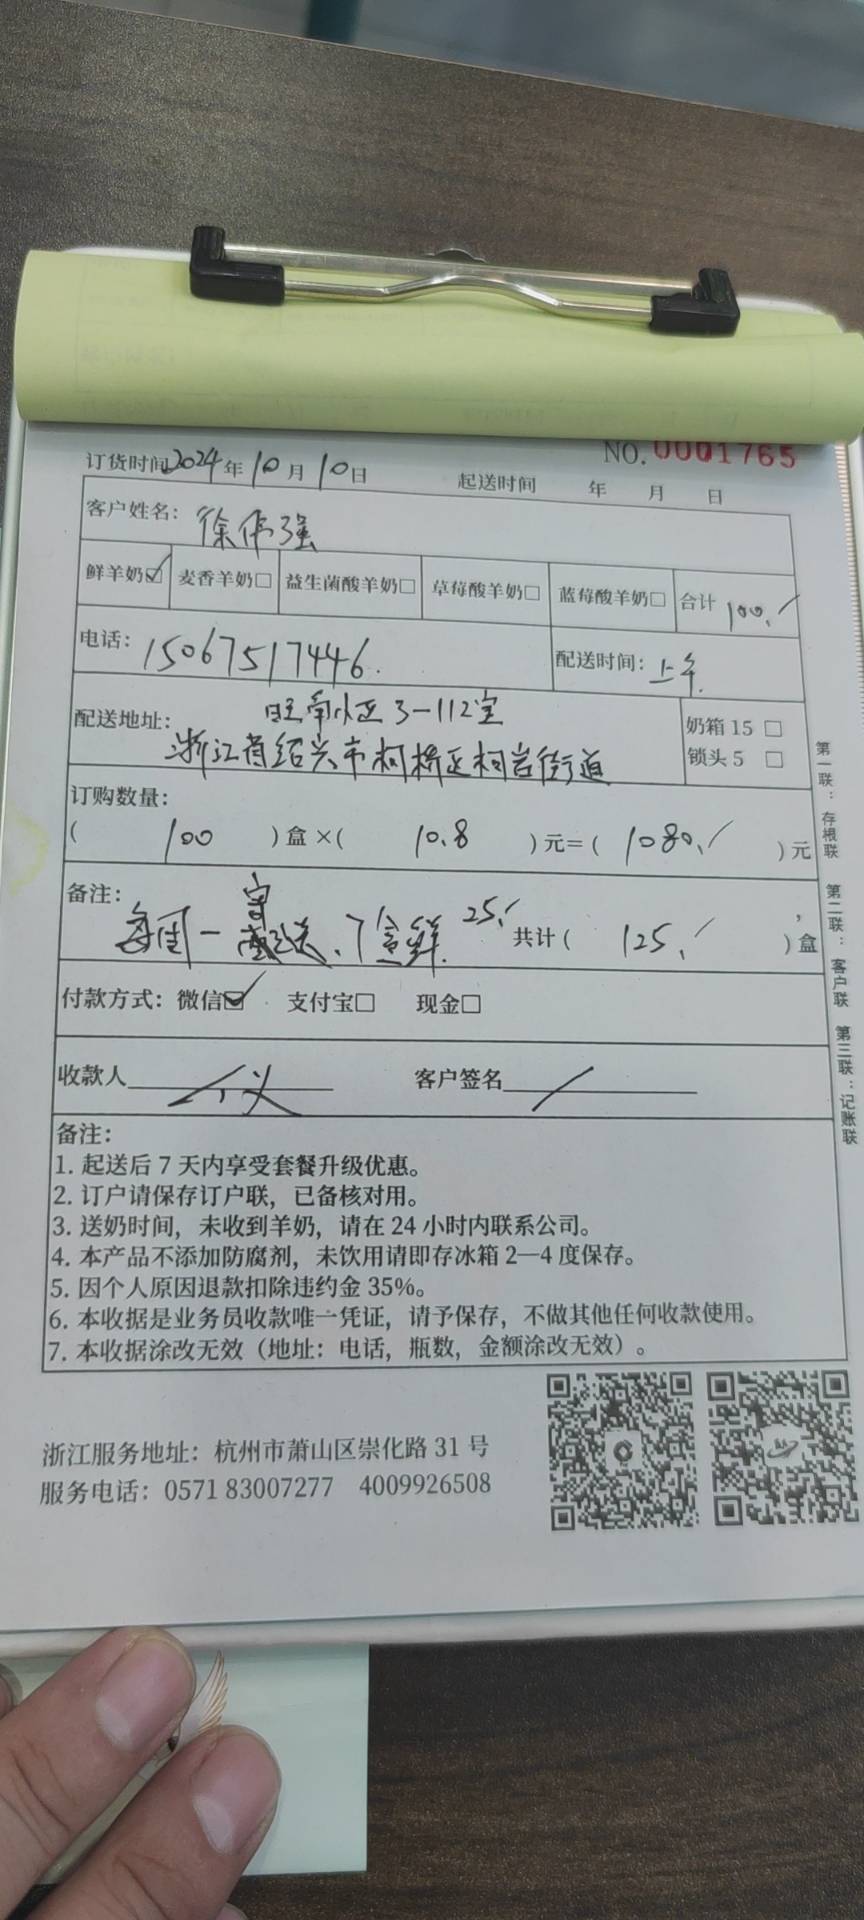 NO.0001765
订货时间2024年10月10日 起送时间 年 月 日
客户姓名：徐伟强
鲜羊奶☑ 麦香羊奶□ 益生菌酸羊奶□ 草莓酸羊奶□ 蓝莓酸羊奶□ 合计 100.
电话：15067517446. 配送时间：上午
配送地址： 旺南小区3-112室
浙江省绍兴市柯桥区柯岩街道
奶箱 15 □
锁头 5 □
订购数量：
( 100 )盒×( 10.8 )元=( 1080. )元
备注：
每周一 送、7盒鲜. 25. 共计( 125. )盒
付款方式：微信☑ 支付宝□ 现金□
收款人 客户签名
备注：
1. 起送后 7 天内享受套餐升级优惠。
2. 订户请保存订户联，已备核对用。
3. 送奶时间，未收到羊奶，请在 24 小时内联系公司。
4. 本产品不添加防腐剂，未饮用请即存冰箱 2—4 度保存。
5. 因个人原因退款扣除违约金 35%。
6. 本收据是业务员收款唯一凭证，请予保存，不做其他任何收款使用。
7. 本收据涂改无效（地址：电话，瓶数，金额涂改无效）。
第一联：存根联 第二联：客户联 第三联：记账联
浙江服务地址：杭州市萧山区崇化路 31 号
服务电话：0571 83007277 4009926508